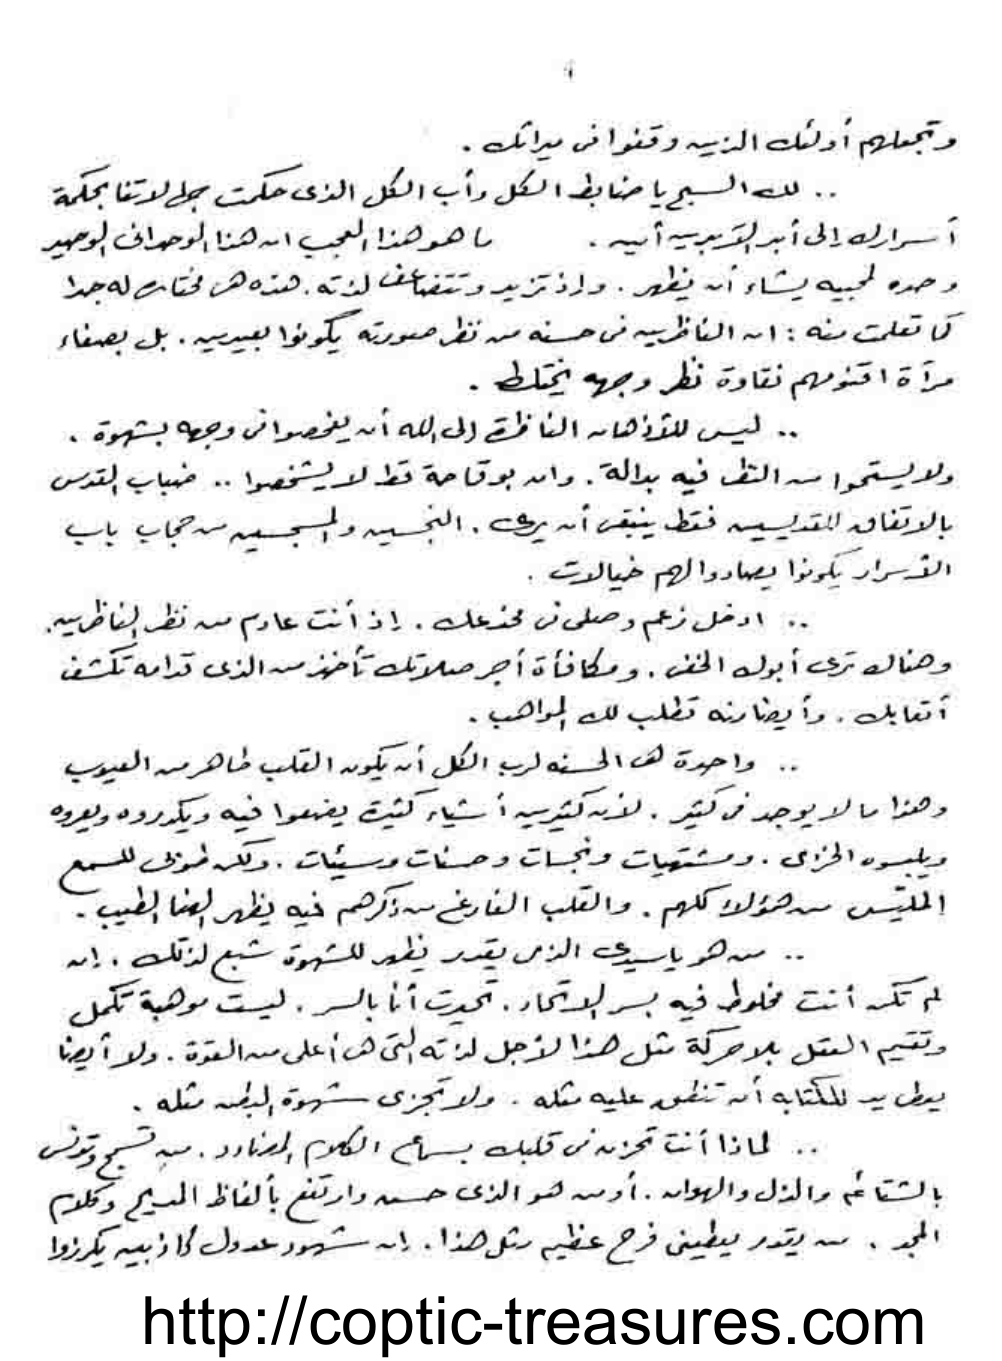 وتجعلهم أولئك الذين وقفوا فى ميراثك .
.. لك السبح يا ضابط الكل وأب الكل الذى حكمت جبلاتنا بحكمة
أسرارك إلى أبد الآبدين أمين . ما هو هذا العجب ان هذا الوحدانى الوحيد
وحده لمحبيه يشاء أن يظهر . وإذ تزيد وتتضاعف لذته . هذه هى مختارة له جدا
كما تعلمت منه : ان الناظرين فى حسنه من نظر صورته يكونوا بعيدين . بل بصفاء
مرآة اقنومهم نقاوة نظر وجهه يختلط .
.. ليس للأذهان الناظرة إلى الله أن يفحصوا فى وجهه بشهوة .
ولا يستحوا من النظر فيه بدالة . وان بوقاحة قط لا يشخصوا .. ضباب القدس
بالاتفاق للقديسين فقط ينبغى أن يرى . النجسين والمسجسين من حجاب باب
الأسرار يكونوا يصادوا لهم خيالات .
.. ادخل زعم وصلى فى مخدعك . إذ أنت عادم من نظر الناظرين .
وهناك ترى أبوك الخفى . ومكافأة أجر صلاتك تأخذ من الذى قدامه تكشف
أتعابك . وأيضا منه تطلب لك المواهب .
.. واحدة هى الحسنه لرب الكل أن يكون القلب طاهر من العيوب
وهذا ما لا يوجد فى كثير . لأن كثيرين أشياء كثيرة يضعوا فيه ويكدروه ويعروه
ويلبسوه الخزى . ومشتهيات ونجسات وحسنات وسيئات . ولكن طوبى للسمع
الملتبس من هؤلاء كلهم . والقلب الفارغ من ذكرهم فيه يظهر الضا الطيب .
.. من هو يا سيدى الذى يقدر ينظر للشهوة شبع لذتك . إن
لم تكن أنت مخلوط فيه بسر الاتحاد . تحيرت أنا بالسر . ليست موهبة تكمل
وتقيم العقل بلا حركة مثل هذا لأجل لذته التى هى أعلى من القوة . ولا أيضا
يعطى يد للكتابه أن تنطق عليه مثله . ولا تجزى شهوة البطن مثله .
.. لماذا أنت تحزن فى قلبك بسماع الكلام المضادد . من تسبح وتونس
بالشتائم والذل والهوان . أو من هو الذى حسن وارتفع بألفاظ المديح وكلام
المجد . من يقدر يعطينى فرح عظيم مثل هذا . إن شهود عدول كاذبين يكرزوا
http://coptic-treasures.com